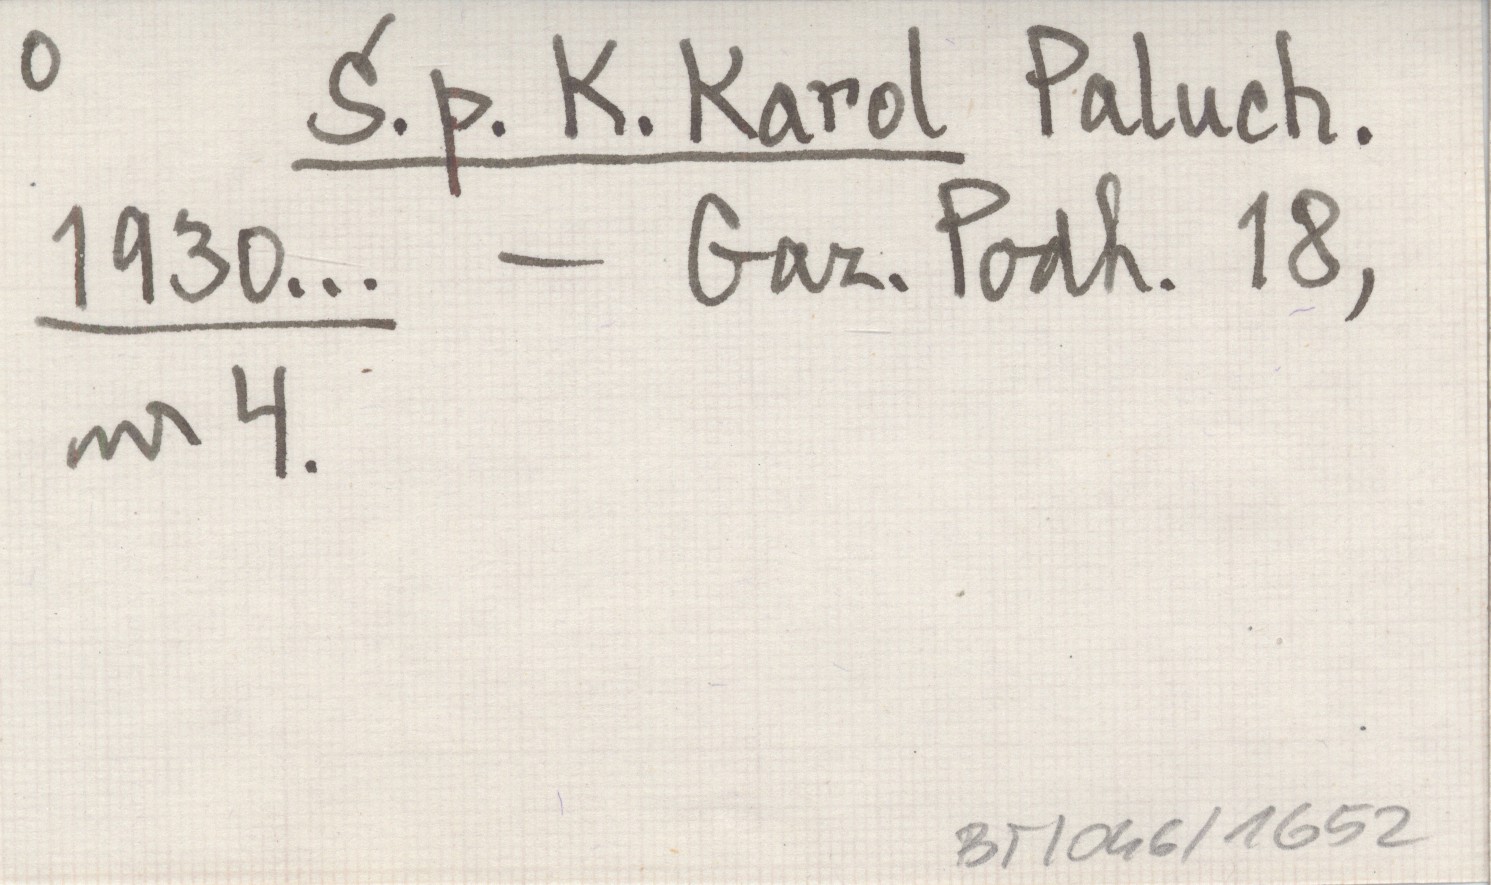 o Ś.p. K. Karol Paluch.
1930... — Gaz. Podh. 18,
nr 4.
BT/046/1652